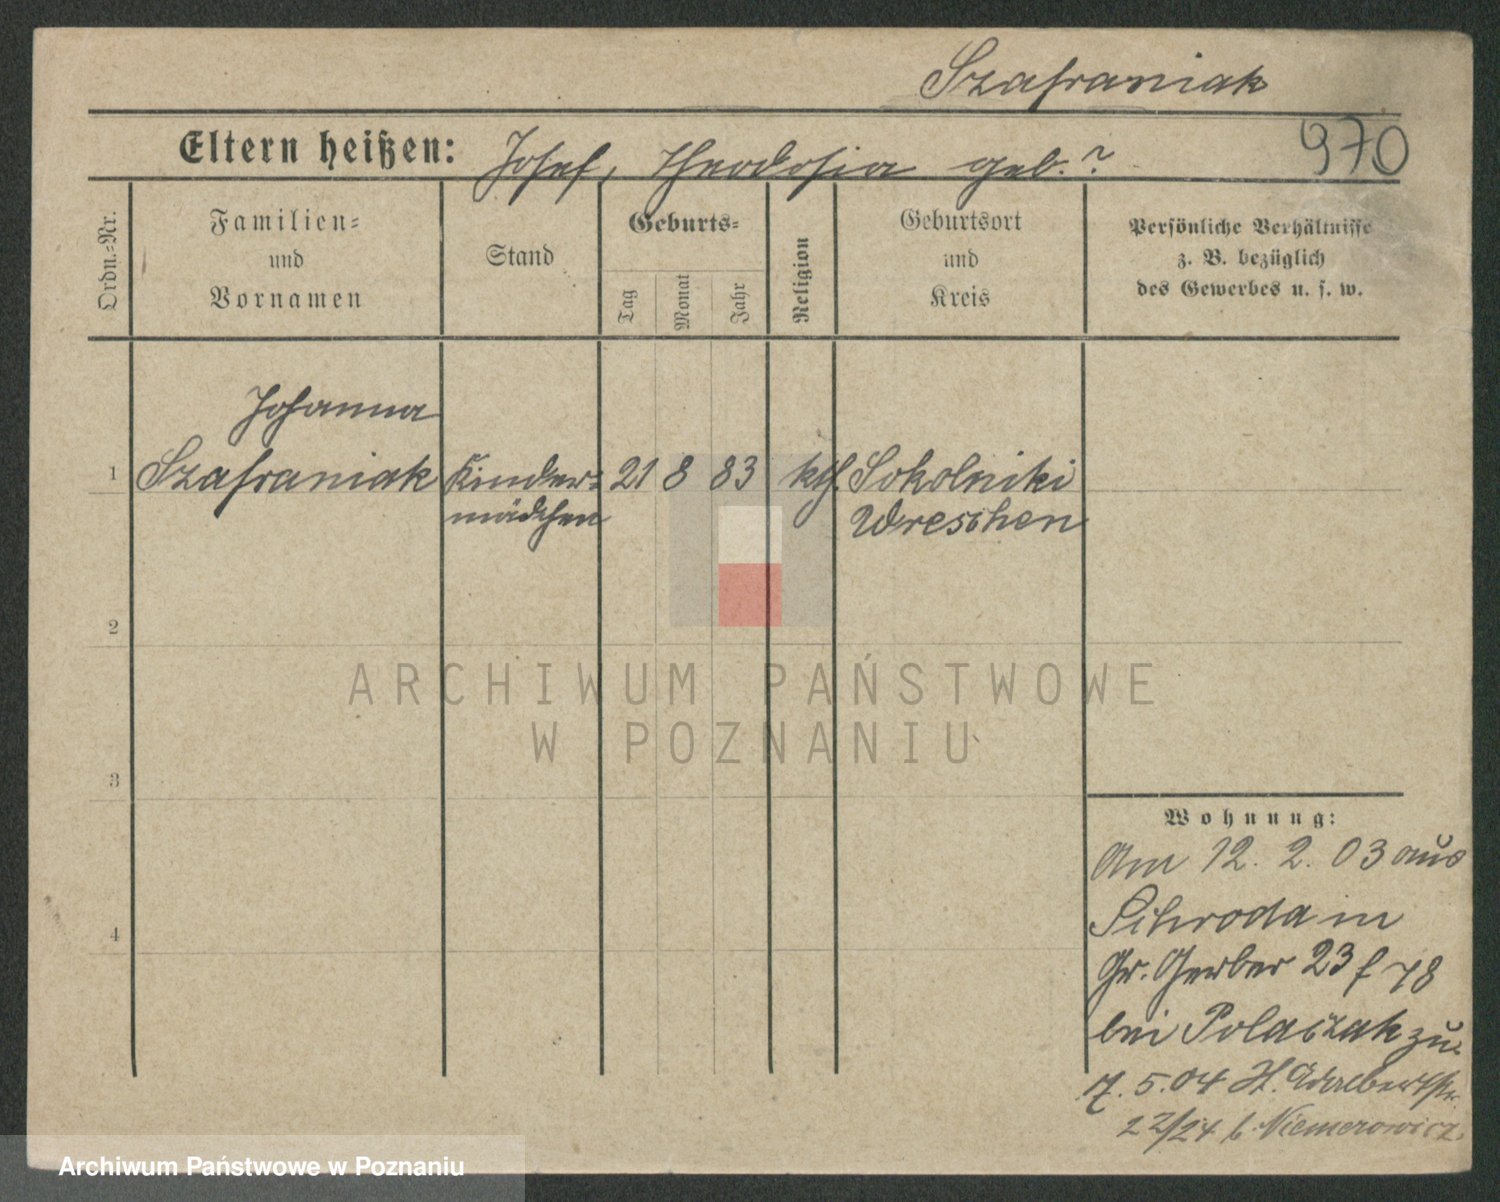 Szafraniak
Eltern heißen: Josef, Theodosia geb. ?
970
Ordn.-Nr.
Familien-
und
Vornamen
Stand
Geburts-
Tag
Monat
Jahr
Religion
Geburtsort
und
Kreis
Persönliche Verhältnisse
z. B. bezüglich
des Gewerbes u. s. w.
Johanna
1 Szafraniak Kinder- 21 8 83 kth. Sokolniki
mädchen Wreschen
2
ARCHIWUM PAŃSTWOWE
W POZNANIU
3
Wohnung:
Am 12. 2. 03 aus
Schroda in
4
Gr. Gerber 23 f 78
bei Polaczak zu.
7. 5. 04 St. Adalbertstr.
22/24 b. Niemerowicz.
Archiwum Państwowe w Poznaniu